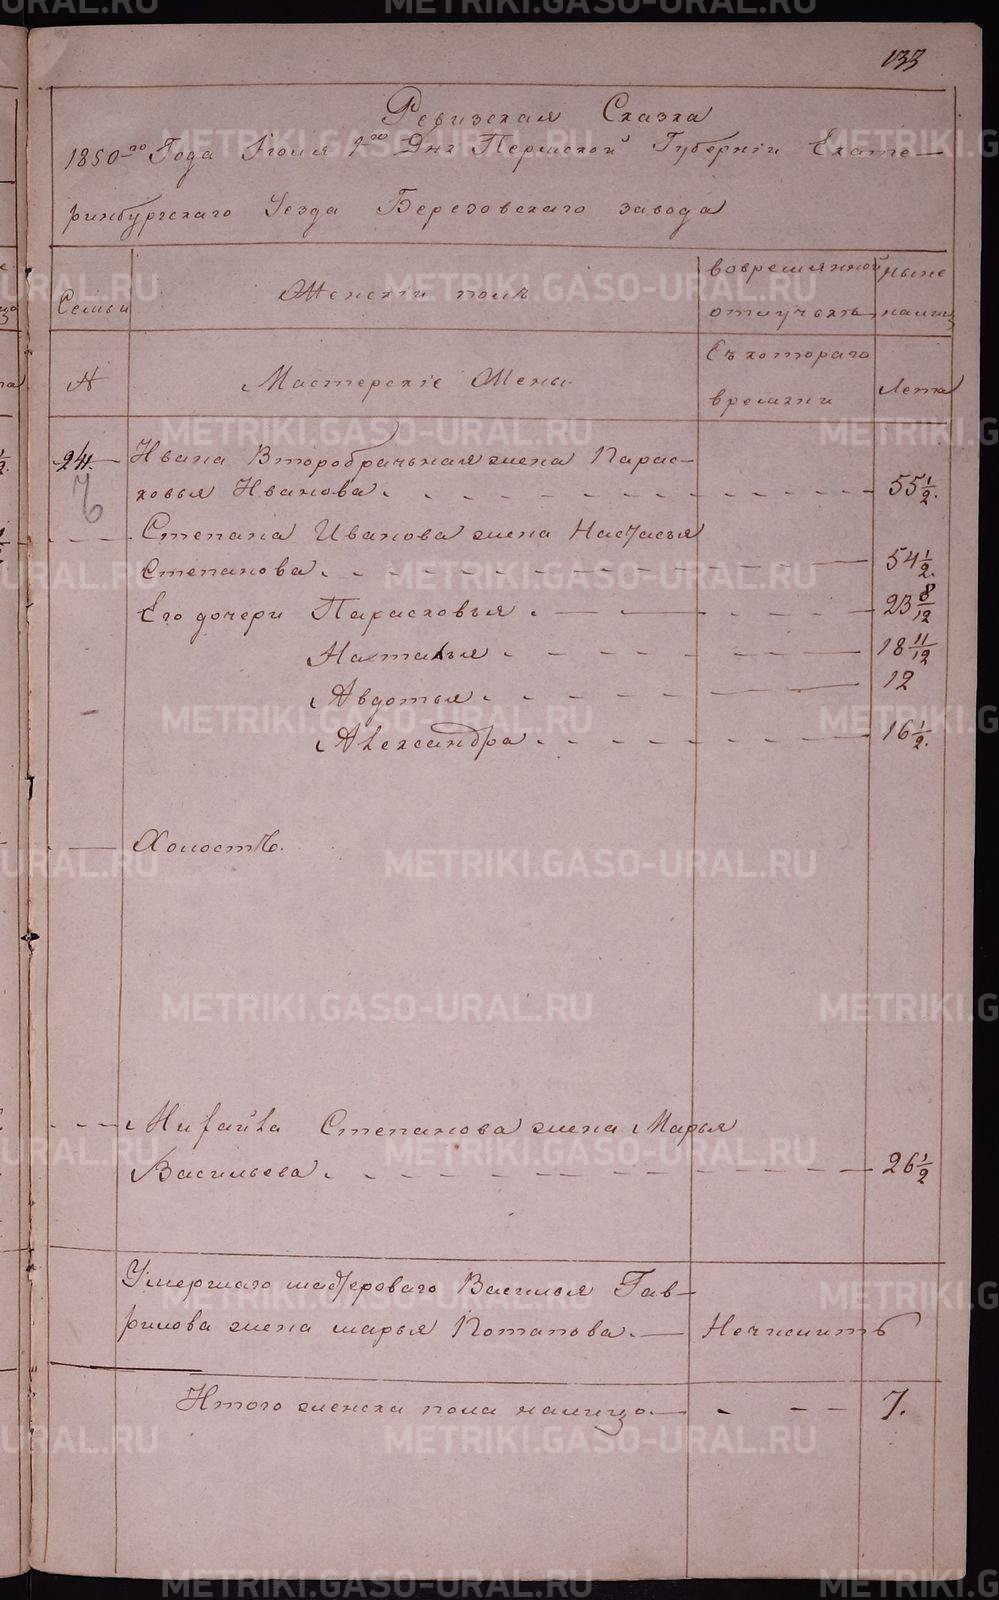 133
Ревизская Сказка
1850-го Года Iюля 1-го Дня Пермской Губернiи Екате-
ринбургскаго Уезда Березовскаго завода
Семьи
Женскiй полъ
вовремянной
отлучькѣ
ныне
налицо
№
Мастерскiе Жены.
Съ котораго
времяни
Лета
24. Ивана Второбрачьная жена Парас-
ковья Иванова. 55 1/2.
Степана Иванова жена Настасья
Степанова. 54 1/2.
Его дочери Парасковья. 23 8/12
Наталья 18 11/12
Авдотья. 12
Александра. 16 1/2.
Холостъ.
Михайла Степанова жена Марья
Васильева. 26 1/2
Умершаго мастероваго Василья Гав-
рилова жена марья Потапова. Нечислитъ
Итого женска пола налицо 7.
METRIKI.GASO-URAL.RU